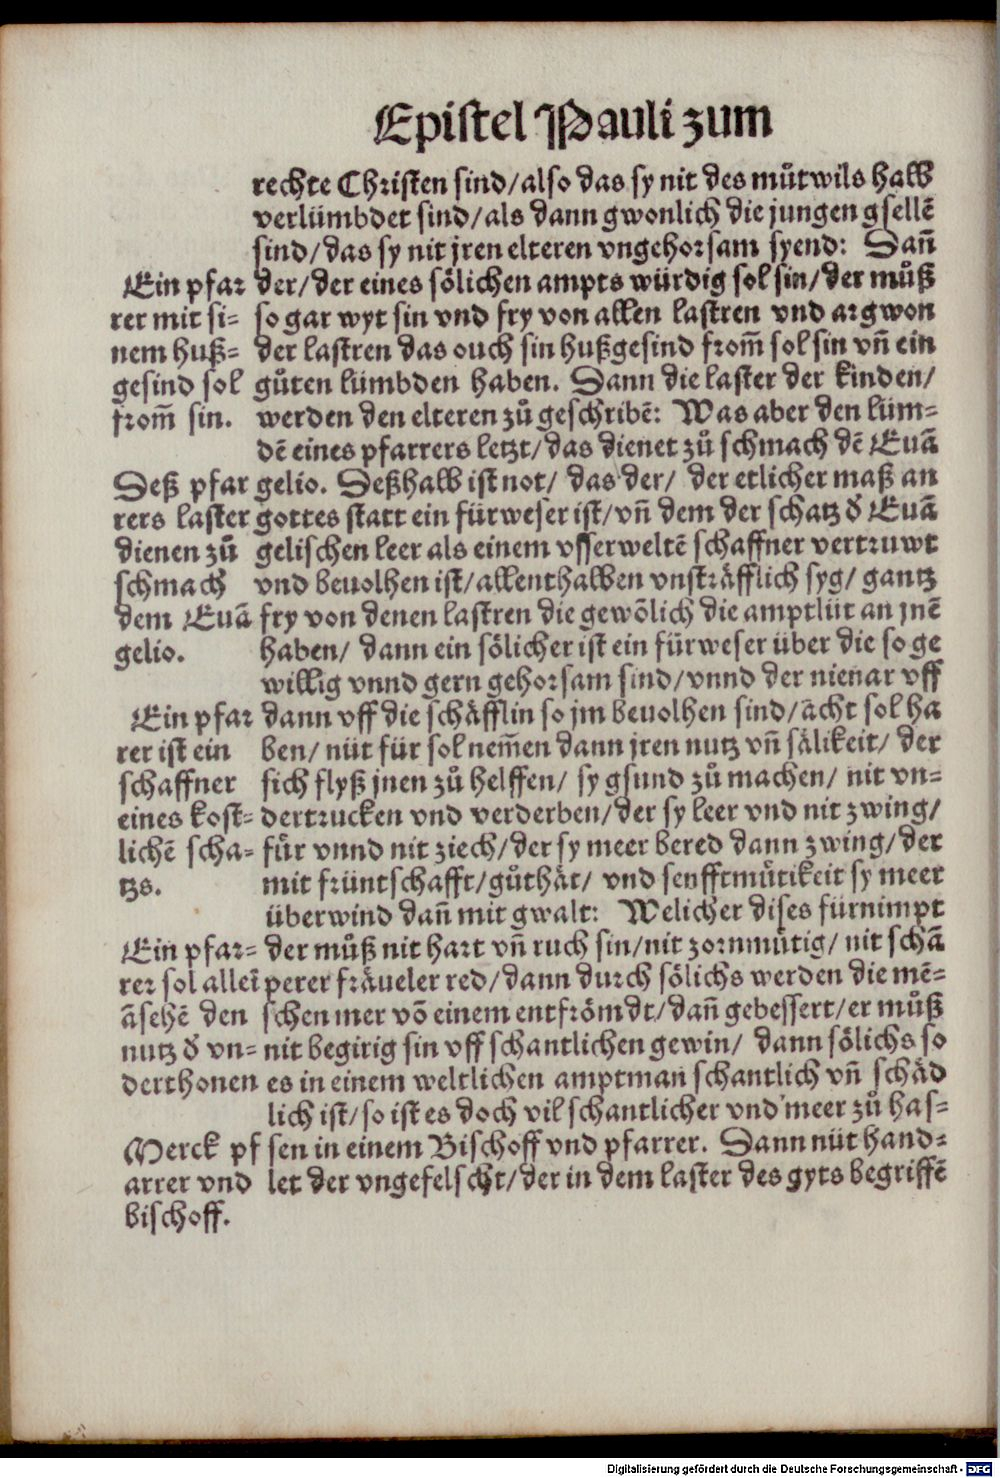 Epistel Pauli zum
rechte Christen sind/also das sy nit des můtwils halb
verlümbdet sind/als dann gwonlich die jungen gsellē
sind/das sy nit jren elteren vngehorsam syend: Dañ
der/der eines sölichen ampts würdig sol sin/der můß
so gar wyt sin vnd fry von allen lastren vnd argwon
der lastren das ouch sin hußgesind from̄ sol sin vñ ein
gůten lümbden haben. Dann die laster der kinden/
werden den elteren zů geschribē: Was aber den lüm-
dē eines pfarrers letzt/das dienet zů schmach dē Euā
gelio. Deßhalb ist not/ das der/ der etlicher maß an
gottes statt ein fürweser ist/vñ dem der schatz ð Euā
gelischen leer als einem vsserweltē schaffner vertruwt
vnd beuolhen ist/allenthalben vnsträfflich syg/ gantz
fry von denen lastren die gewōlich die amptlüt an jnē
haben/ dann ein sölicher ist ein fürweser über die so ge
willig vnnd gern gehorsam sind/vnnd der nienar vff
dann vff die schäfflin so jm beuolhen sind/ācht sol ha
ben/ nüt für sol nem̄en dann jren nutz vñ sälikeit/ der
sich flyß jnen zů helffen/ sy gsund zů machen/ nit vn-
dertrucken vnd verderben/der sy leer vnd nit zwing/
für vnnd nit ziech/der sy meer bered dann zwing/der
mit früntschafft/gůthät/ vnd senfftmütikeit sy meer
überwind dañ mit gwalt: Welicher dises fürnimpt
der můß nit hart vñ ruch sin/nit zornmütig/ nit schā
perer fräueler red/dann durch sölichs werden die mē-
schen mer vō einem entfrömdt/dañ gebessert/er můß
nit begirig sin vff schantlichen gewin/ dann sölichs so
es in einem weltlichen amptman schantlich vñ schäd
lich ist/so ist es doch vil schantlicher vnd meer zů has-
sen in einem Bischoff vnd pfarrer. Dann nüt hand-
let der vngefelscht/der in dem laster des gyts begriffē
Ein pfar
rer mit si-
nem huß-
gesind sol
from̄ sin.
Deß pfar
rers laster
dienen zů
schmach
dem Euā
gelio.
Ein pfar
rer ist ein
schaffner
eines kost-
lichē scha-
tzs.
Ein pfar-
rer sol alleī
āsehē den
nutz ð vn-
derthonen
Merck pf
arrer vnd
bischoff.
Digitalisierung gefördert durch die Deutsche Forschungsgemeinschaft - DFG